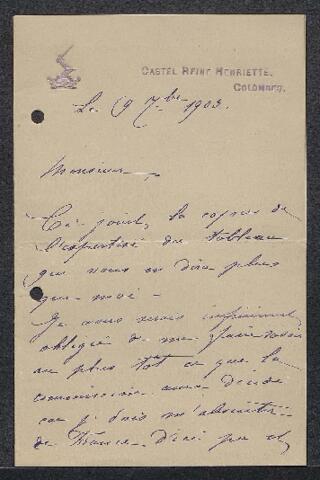 CASTEL REINE HENRIETTE.
COLOMBES.
Le 9 7bre 1903.
Monsieur,
Ci joint, la copie de
l'expertise du tableau
qui vous en dira plus
que moi -
Je vous serais infiniment
obligée de me faire savoir
au plus tôt ce que la
commission aura décidé
car je dois m'absenter
de France d'ici peu et